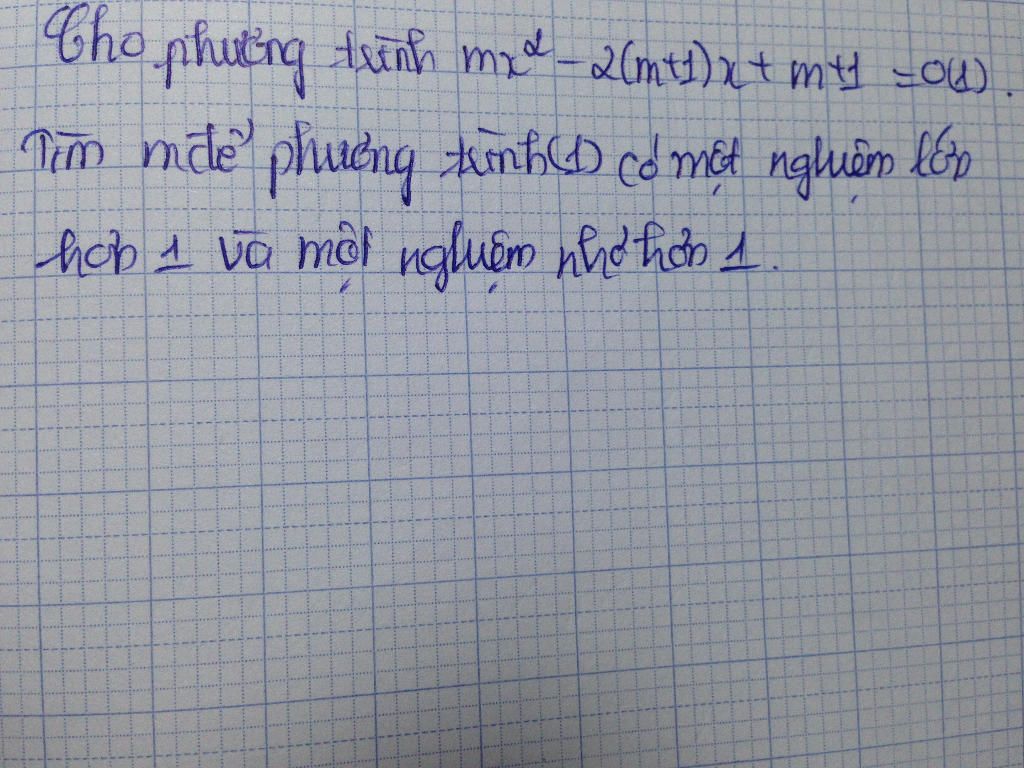 Cho phương trình mx² - 2(m+1)x + m+1 = 0(1).
Tìm m để phương trình (1) có một nghiệm lớn
hơn 1 và một nghiệm nhỏ hơn 1.